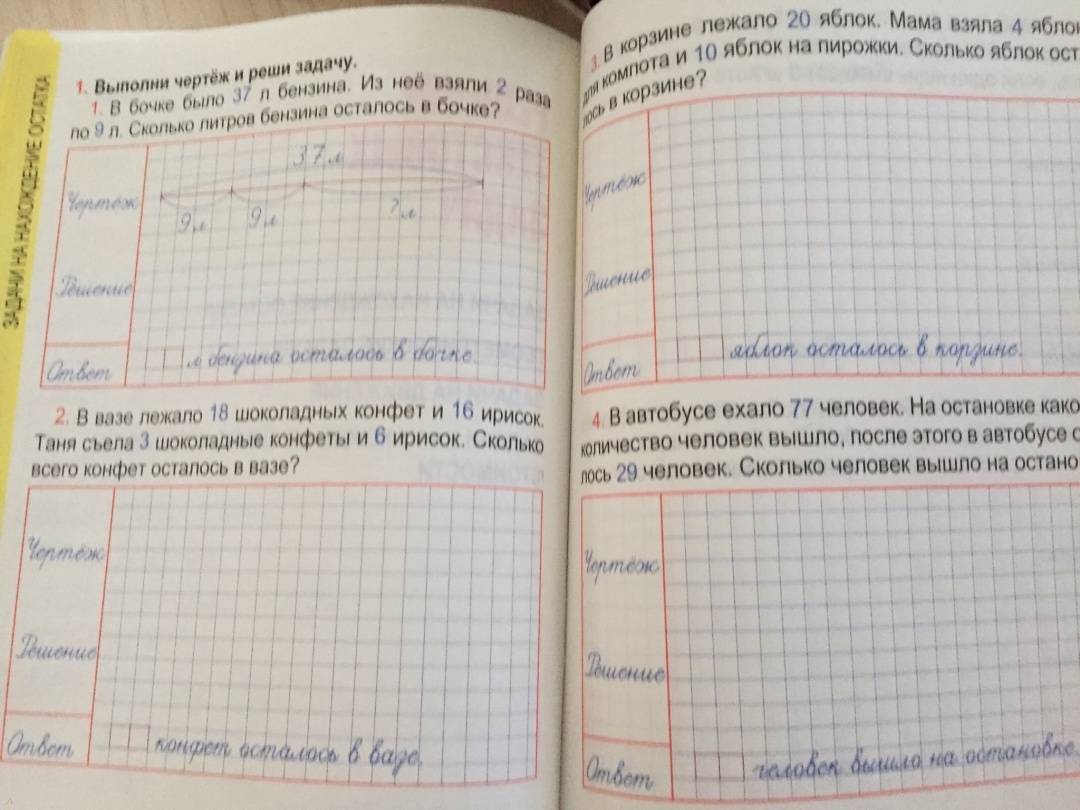 ЗАДАЧИ НА НАХОЖДЕНИЕ ОСТАТКА
1. Выполни чертёж и реши задачу.
1. В бочке было 37 л бензина. Из неё взяли 2 раза
по 9 л. Сколько литров бензина осталось в бочке?
37 л
Чертёж
9 л 9 л ? л
Решение
Ответ л бензина осталось в бочке.
2. В вазе лежало 18 шоколадных конфет и 16 ирисок.
Таня съела 3 шоколадные конфеты и 6 ирисок. Сколько
всего конфет осталось в вазе?
Чертёж
Решение
Ответ конфет осталось в вазе.
3. В корзине лежало 20 яблок. Мама взяла 4 яблок
для компота и 10 яблок на пирожки. Сколько яблок ост
лось в корзине?
Чертёж
Решение
Ответ яблок осталось в корзине.
4. В автобусе ехало 77 человек. На остановке како
количество человек вышло, после этого в автобусе о
лось 29 человек. Сколько человек вышло на остано
Чертёж
Решение
Ответ человек вышло на остановке.